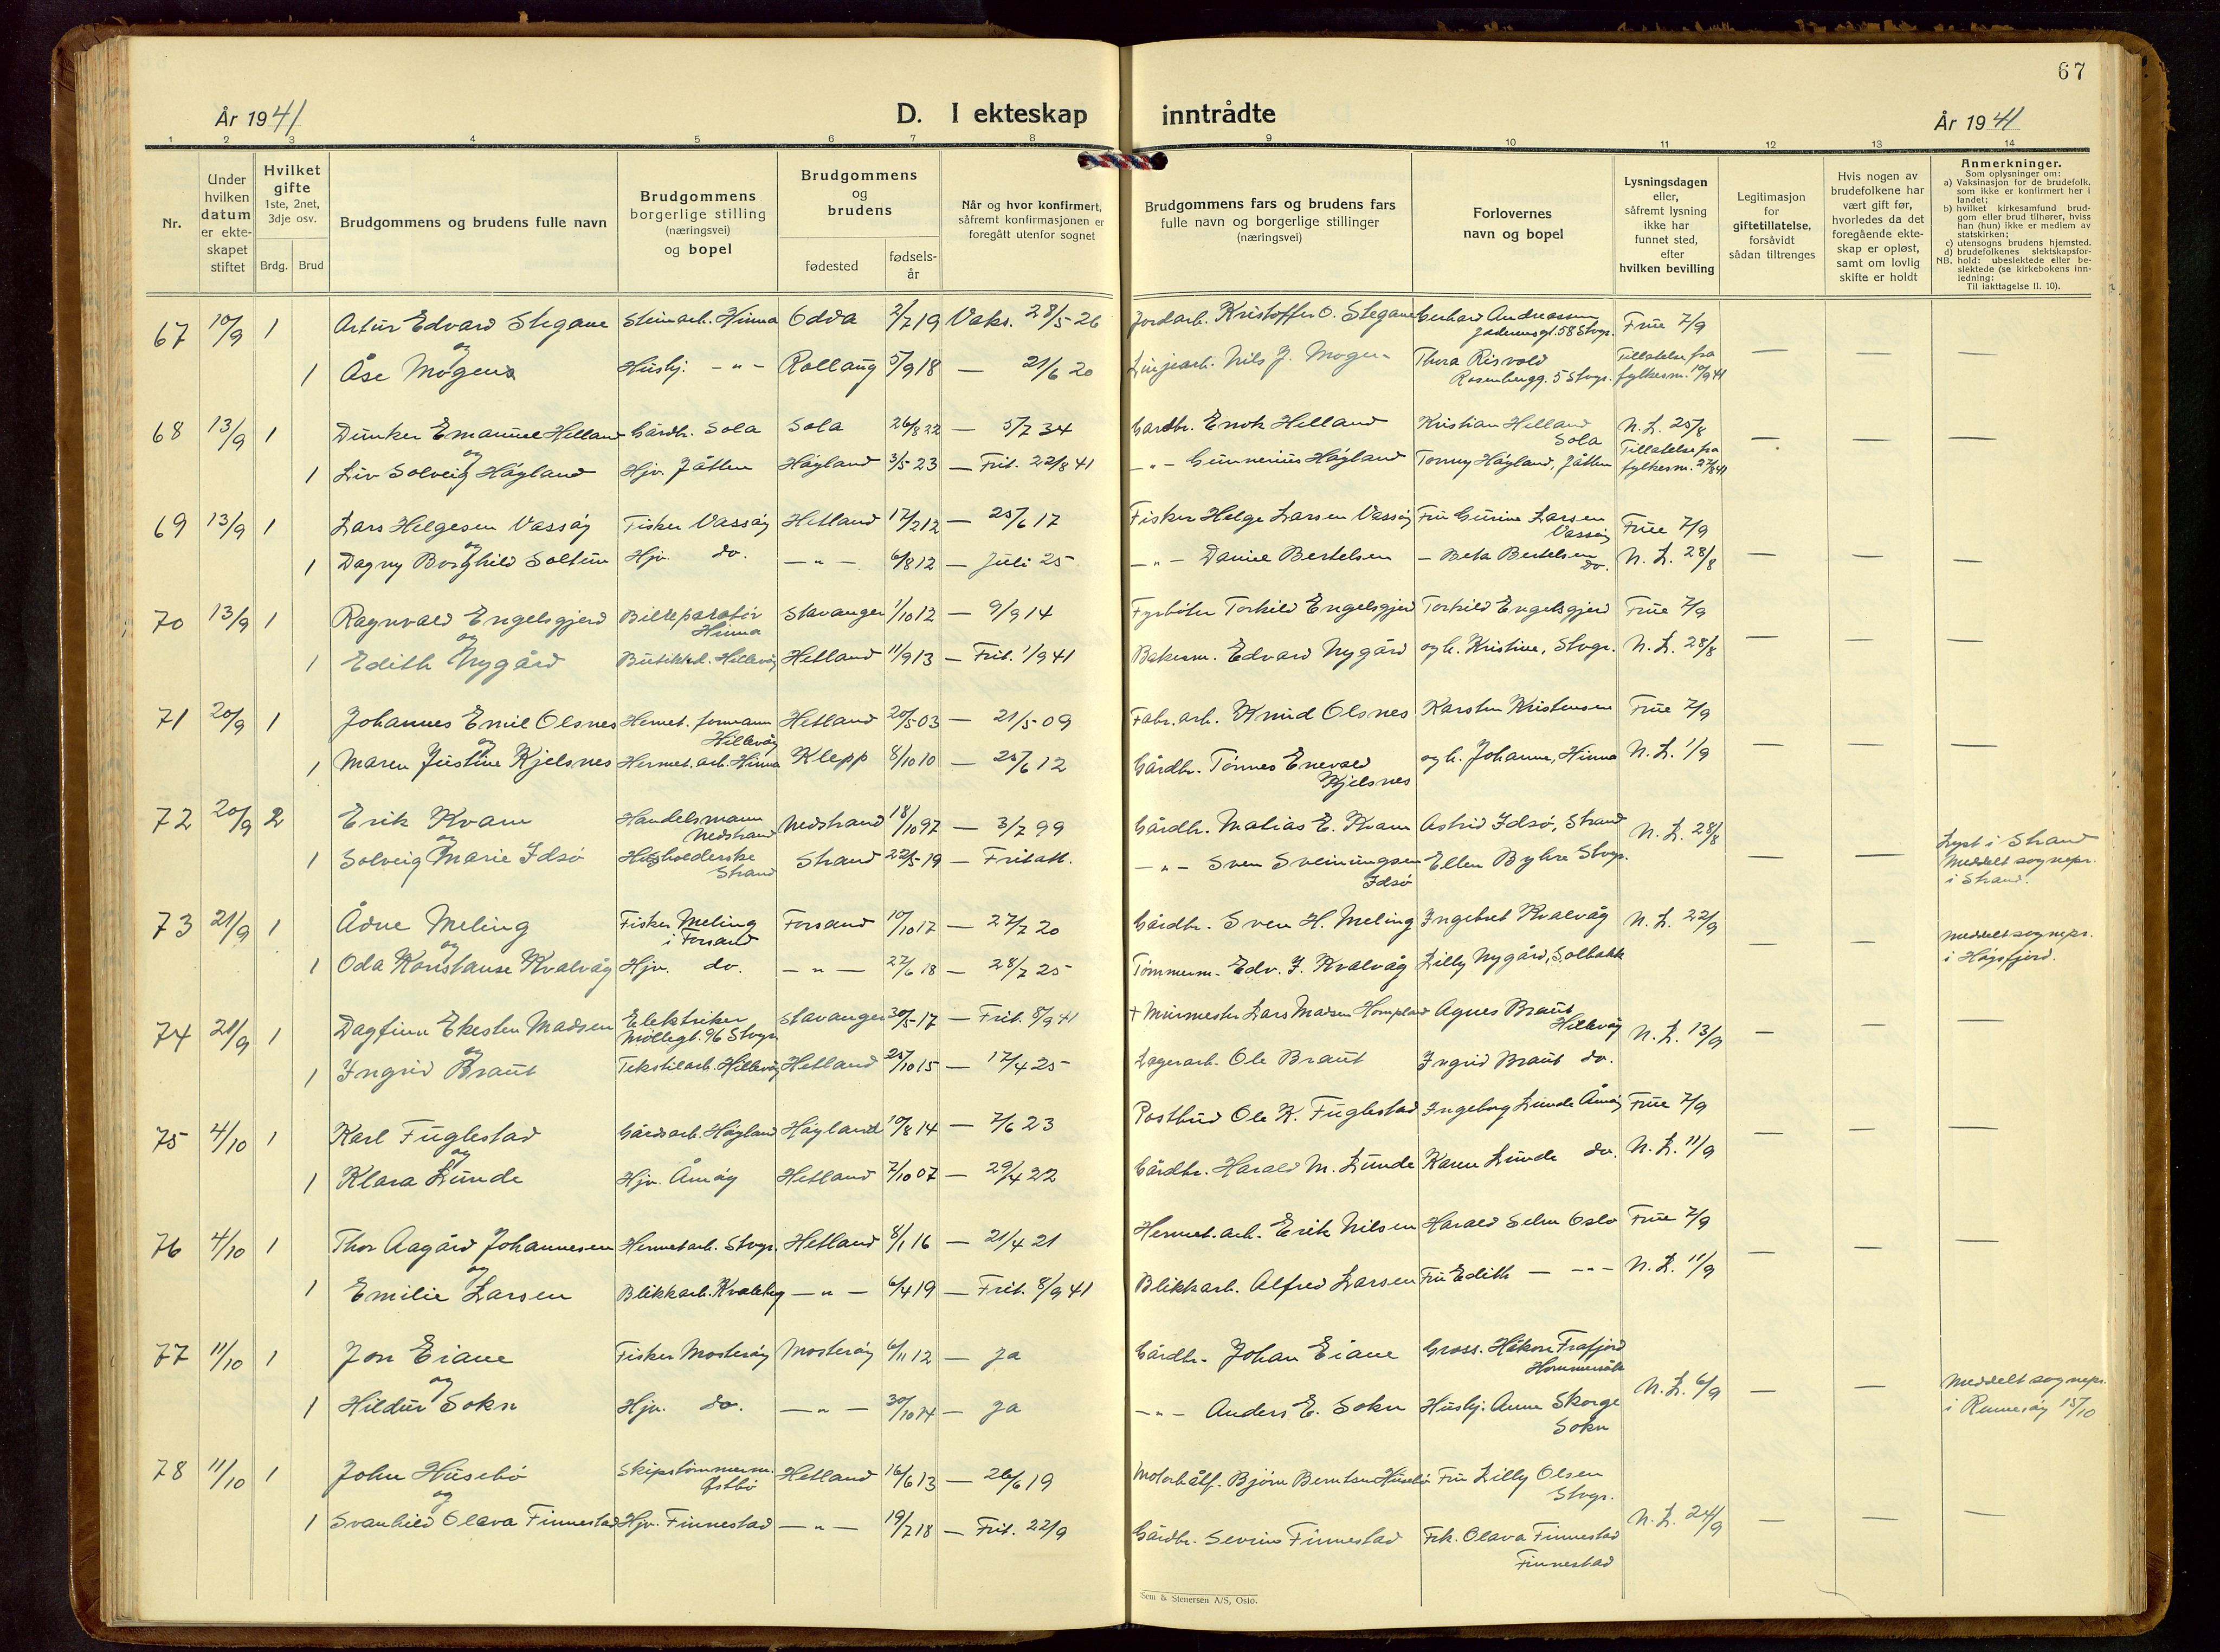 67
År 1941
D. I ekteskap inntrådte
År 1941
1 2 3 4 5 6 7 8 9 10 11 12 13 14
Nr.
Under hvilken datum er ekteskapet stiftet
Hvilket gifte 1ste, 2net, 3dje osv.
Brdg. Brud
Brudgommens og brudens fulle navn
Brudgommens borgerlige stilling (næringsvei) og bopel
Brudgommens og brudens
fødested
fødsels-år
Når og hvor konfirmert, såfremt konfirmasjonen er foregått utenfor sognet
Brudgommens fars og brudens fars fulle navn og borgerlige stillinger (næringsvei)
Forlovernes navn og bopel
Lysningsdagen eller, såfremt lysning ikke har funnet sted, efter hvilken bevilling
Legitimasjon for giftetillatelse, forsåvidt sådan tiltrenges
Hvis nogen av brudefolkene har vært gift før, hvorledes da det foregående ekteskap er opløst, samt om lovlig skifte er holdt
Anmerkninger.
Som oplysninger om:
a) Vaksinasjon for de brudefolk, som ikke er konfirmert her i landet;
b) hvilket kirkesamfund brudgom eller brud tilhører, hviss han (hun) ikke er medlem av statskirken;
c) utensogns brudens hjemsted.
d) brudefolkenes slektskapsforhold: ubeslektede eller beslektede (se kirkebokens innledning:
NB.
Til iakttagelse II. 10).
67 10/9 1 Artur Edvard Stegane Steinarb. Hinna Odda 2/7 19 Vaks. 28/5 26 Jordarb. Kristoffer O. Stegane Gerhard Andreassen 58 Stvgr. Frue 7/9
og
1 Åse Mogens Husbj. - " - Rollaug 5/9 18 — 21/6 20 Linjearb. Nils J. Mogen Thora Risvold Rosenbergg. 5 Stvgr. Tillatelse fra fylkesm. 10/9 41 — — —
68 13/9 1 Dunker Emanuel Helland Gårdbr. Sola Sola 26/8 22 — 5/7 34 Gardbr. Enok Helland Kristian Helland Sola N. L. 25/8
og
1 Liv Solveig Høyland Hjv. Jåtten Høyland 3/5 23 — Frit. 22/8 41 — " — Gunnerius Høyland Tonny Høyland, Jåtten Tillatelse fra fylkesm. 27/8 41 — — —
69 13/9 1 Lars Helgesen Vassøy Fisker Vassøy Hetland 17/2 12 — 25/6 17 Fisker Helge Larsen Vassøy Fru Gurine Larsen Vassøy Frue 7/9
og
1 Dagny Borghild Soltun Hjv. do. — " — 6/8 12 — Juli 25 — " — Daniel Bertelsen — Beta Bertelsen do. N. L. 28/8 — — —
70 13/9 1 Ragnvald Engelsgjerd Bilreparatør Hinna Stavanger 1/10 12 — 9/9 14 Fyrbøter Torkild Engelsgjerd Torkild Engelsgjerd Frue 7/9
og
1 Edith Nygård Butikkd. Hillevåg Hetland 11/9 13 — Frit. 1/9 41 Bakerm. Edvard Nygård og h. Kristine, Stvgr. N. L. 28/8 — — —
71 20/9 1 Johannes Emil Olsnes Hermet. formann Hillevåg Hetland 20/5 03 — 21/5 09 Fabr. arb. Knud Olsnes Karsten Kristensen Frue 7/9
og
1 Maren Justine Kjelsnes Hermet. arb. Hinna Klepp 8/10 10 — 25/6 12 Gårdbr. Tønnes Enevald Kjelsnes og h. Johanne, Hinna N. L. 1/9 — — —
72 20/9 2 Erik Kvam Handelsmann Nedstrand Nedstrand 18/10 97 — 3/7 99 Gårdbr. Matias E. Kvam Astrid Idsø, Strand N. L. 28/8
og
1 Solveig Marie Idsø Husholderske Strand Strand 22/5 19 — Fritatt. — " — Sven Sveinungsen Idsø Ellen Byhre Stvgr. — — Lyst i Strand Meddelt sognepr. i Strand.
73 21/9 1 Ådne Meling Fisker Meling i Forsand Forsand 10/10 17 — 27/7 20 Gårdbr. Sven H. Meling Ingebret Kvalvåg N. L. 22/9
og
1 Oda Konstanse Kvalvåg Hjv. do. — " — 27/6 18 — 28/7 25 Tømmerm. Edv. J. Kvalvåg Lilly Nygård, Solbakk — — Meddelt sognepr. i Høgsfjord.
74 21/9 1 Dagfinn Ekesten Madsen Elektriker Møllegt. 96 Stvgr. Stavanger 30/5 17 — Frit. 8/9 41 † Murmester Lars Madsen Agnes Braut Hillevåg N. L. 13/9
og
1 Ingrid Braut Tekstilarb. Hillevåg Hetland 25/10 15 — 17/4 25 Lagerarb. Ole Braut Ingrid Braut do. — — —
75 4/10 1 Karl Fuglestad Gårdsarb. Høyland Høyland 10/8 14 — 7/6 23 Postbud Ole K. Fuglestad Ingeborg Lunde Åmøy Frue 7/9
og
1 Klara Lunde Hjv. Åmøy Hetland 7/10 07 — 29/4 22 Gårdbr. Harald M. Lunde Karen Lunde do. N. L. 11/9 — — —
76 4/10 1 Thor Aagård Johannesen Hermetarb. Stvgr. Hetland 8/1 16 — 21/4 21 Hermet. arb. Erik Nilsen Harald Selm Oslo Frue 7/9
og
1 Emilie Larsen Blikkarb. Kvaleberg — " — 6/4 19 — Frit. 8/9 41 Blikkarb. Alfred Larsen Fru Edith — - " - N. L. 11/9 — — —
77 11/10 1 Jon Eiane Fisker Mosterøy Mosterøy 6/11 12 — Ja Gårdbr. Johan Eiane Gross. Håkon Frafjord Hommersåk
og
1 Hildur Sokn Hjv. do. — " — 30/10 14 — Ja — " — Anders E. Sokn Husbj. Anne Skorge Sokn N. L. 6/9 — — Meddelt sognepr. i Rennesøy 15/10
78 11/10 1 John Husebø Skipstømmerm. Østbø Hetland 16/6 13 — 26/6 19 Bjørn Berntsen Husebø Fru Lilly Olsen Stvgr.
og
1 Svanhild Olava Finnestad Hjv. Finnestad — " — 19/7 18 — Frit. 22/9 Gårdbr. Severin Finnestad Frk. Olava Finnestad Finnestad N. L. 24/9 — — —
Sem & Stenersen A/S, Oslo.